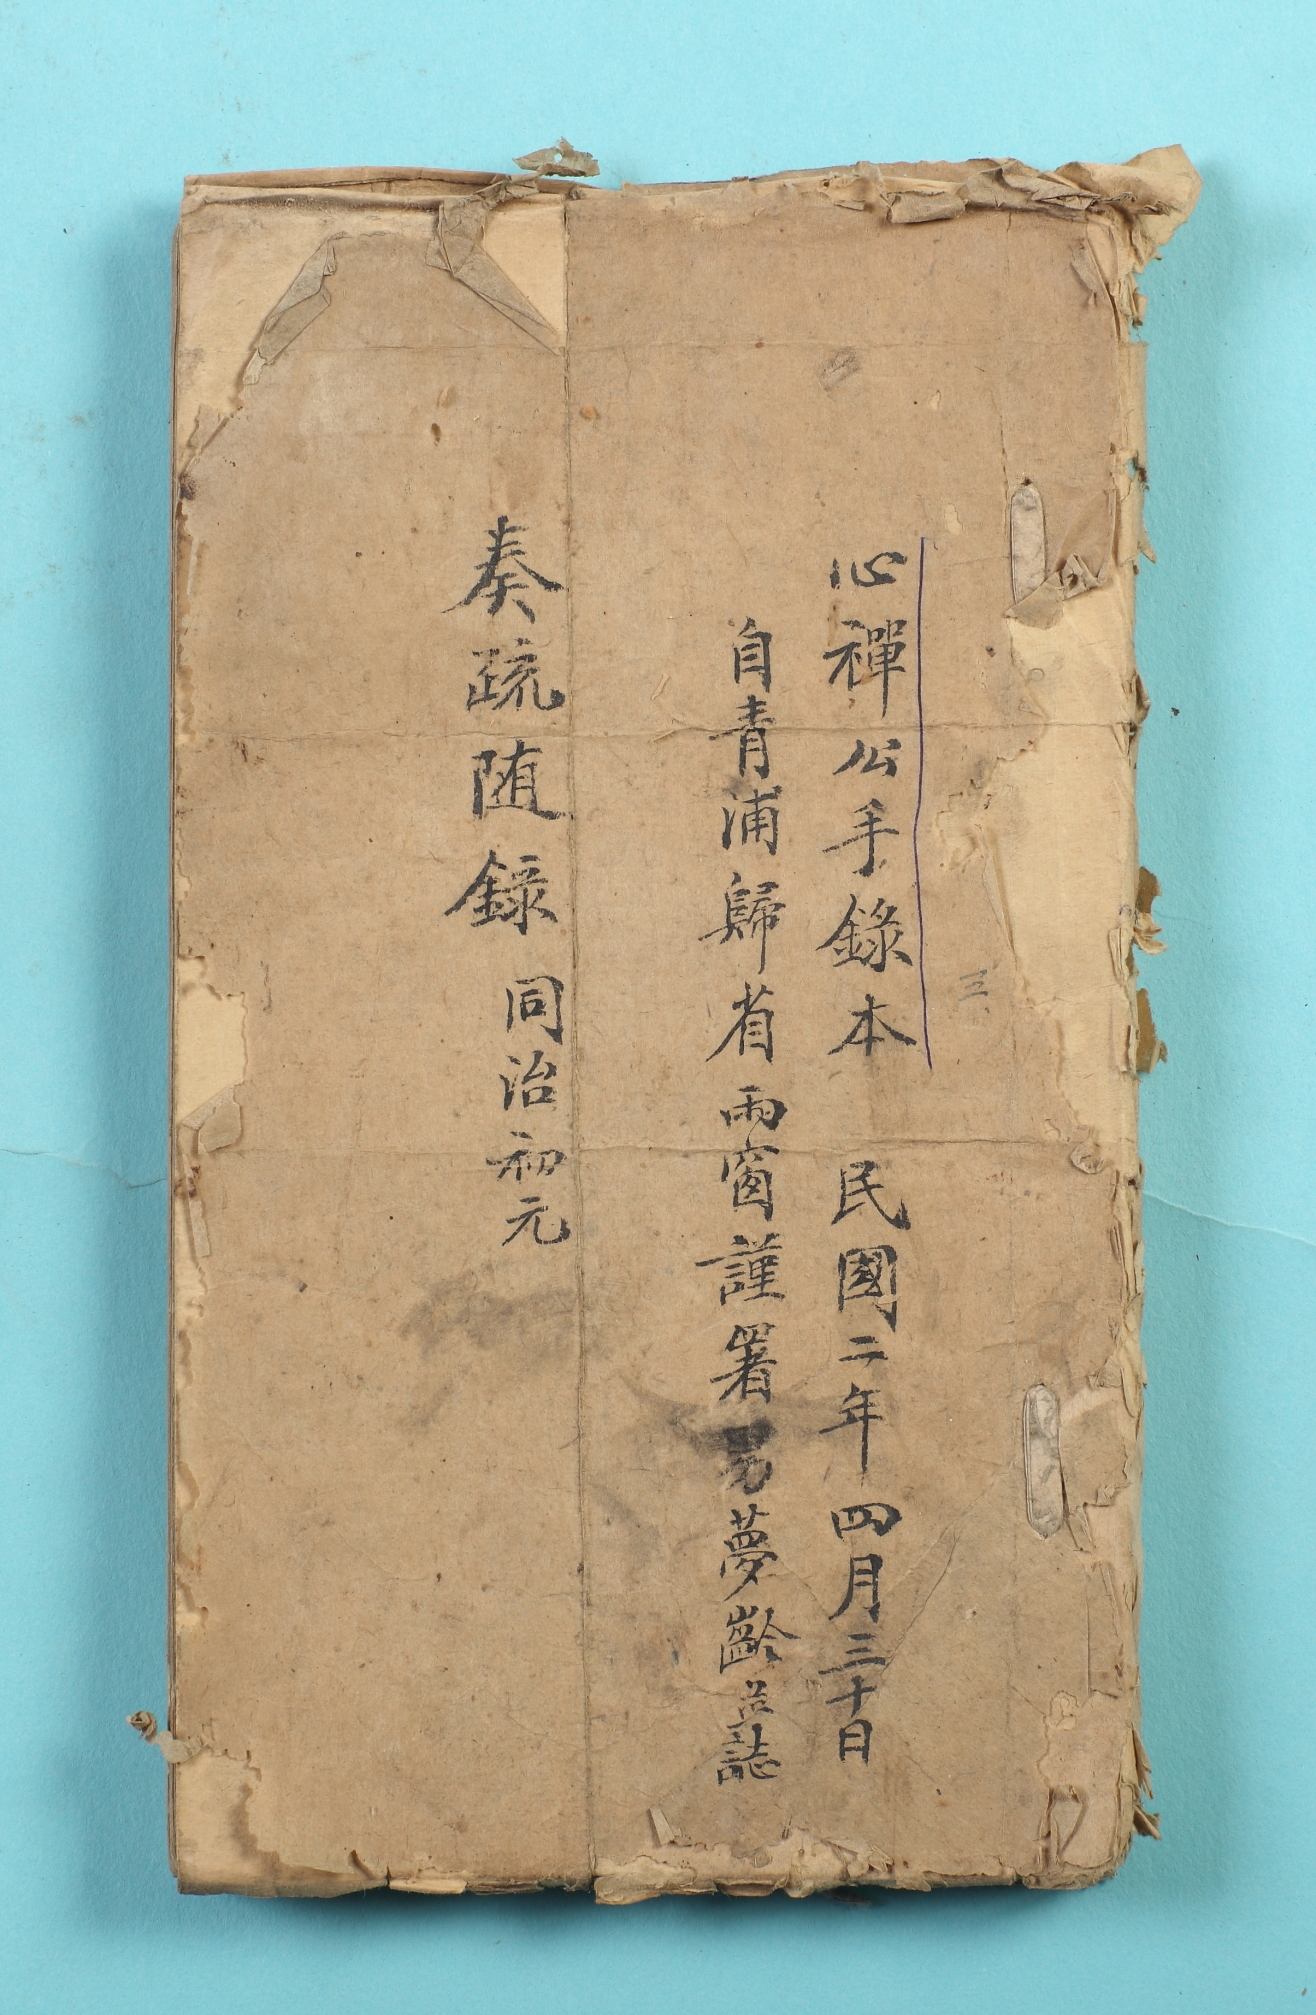 心禪公手錄本 民國二年四月三十日
自青浦歸省雨窗謹署男夢齡並誌
奏疏随錄 同治初元
三